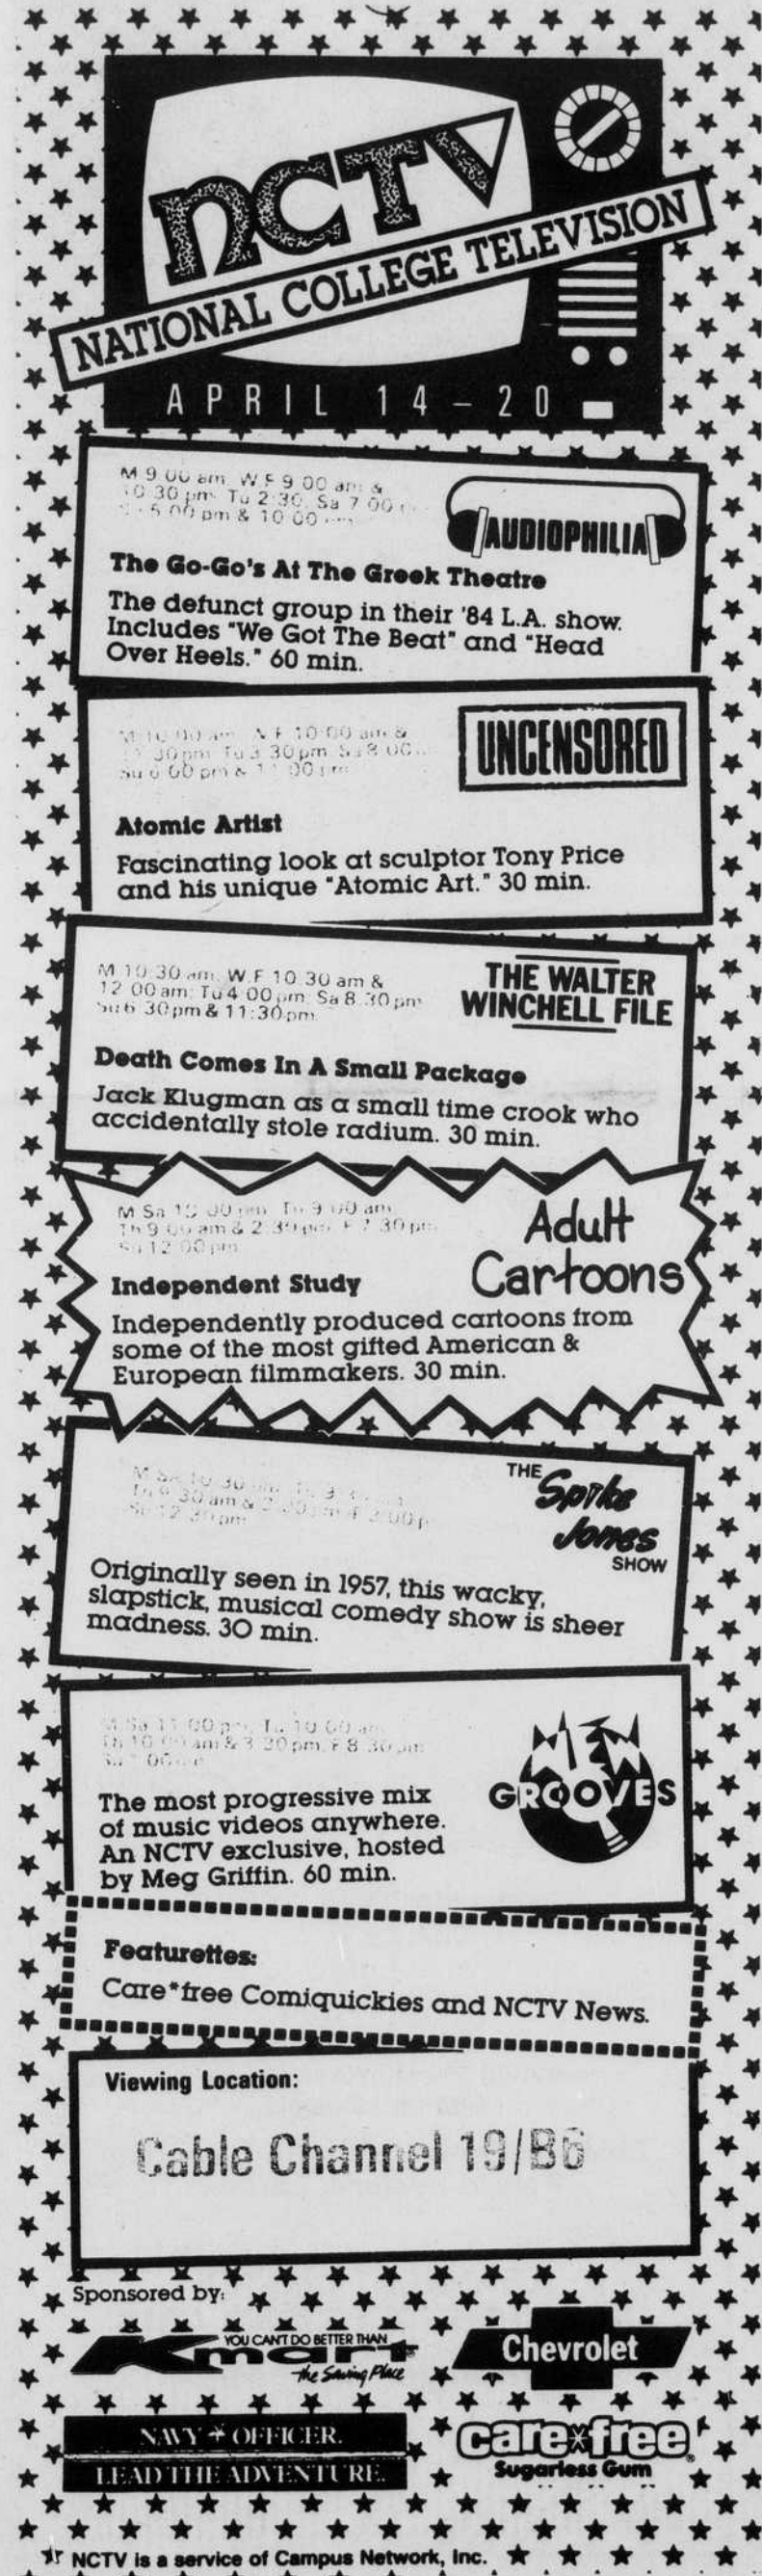 NCTV
NATIONAL COLLEGE TELEVISION
APRIL 14-20
M 9:00 am, W,F 9:00 am &
10:30 pm, Tu 2:30, Sa 7:00
5:00 pm & 10:00
AUDIOPHILIA
The Go-Go's At The Greek Theatre
The defunct group in their '84 L.A. show.
Includes "We Got The Beat" and "Head
Over Heels." 60 min.
M 10:00 am W F 10:00 am &
30 pm Tu 3:30 pm Sa 8:00
Su 6:00 pm & 11:00 pm
UNCENSORED
Atomic Artist
Fascinating look at sculptor Tony Price
and his unique "Atomic Art." 30 min.
M 10:30 am, W,F 10:30 am &
12:00 am; Tu 4:00 pm; Sa 8:30 pm
Su 6:30 pm & 11:30 pm
THE WALTER
WINCHELL FILE
Death Comes In A Small Package
Jack Klugman as a small time crook who
accidentally stole radium. 30 min.
M Sa 10:00 pm Tu 9:00 am
Th 9:00 am & 2:30 pm F 7:30 pm
Su 12:00 pm
Adult
Cartoons
Independent Study
Independently produced cartoons from
some of the most gifted American &
European filmmakers. 30 min.
30 am &
THE Spike
Jones
SHOW
Originally seen in 1957, this wacky,
slapstick, musical comedy show is sheer
madness. 30 min.
M Sa 11:00 pm, Tu 10:00 am
Th 10:00 am & 3:30 pm, F 8:30 pm
NEW
GROOVES
The most progressive mix
of music videos anywhere.
An NCTV exclusive, hosted
by Meg Griffin. 60 min.
Featurettes:
Care*free Comiquickies and NCTV News.
Viewing Location:
Cable Channel 19/B6
Sponsored by:
YOU CAN'T DO BETTER THAN
Kmart
the Saving Place
Chevrolet
NAVY OFFICER.
LEAD THE ADVENTURE.
care*free®
Sugarless Gum
NCTV is a service of Campus Network, Inc.